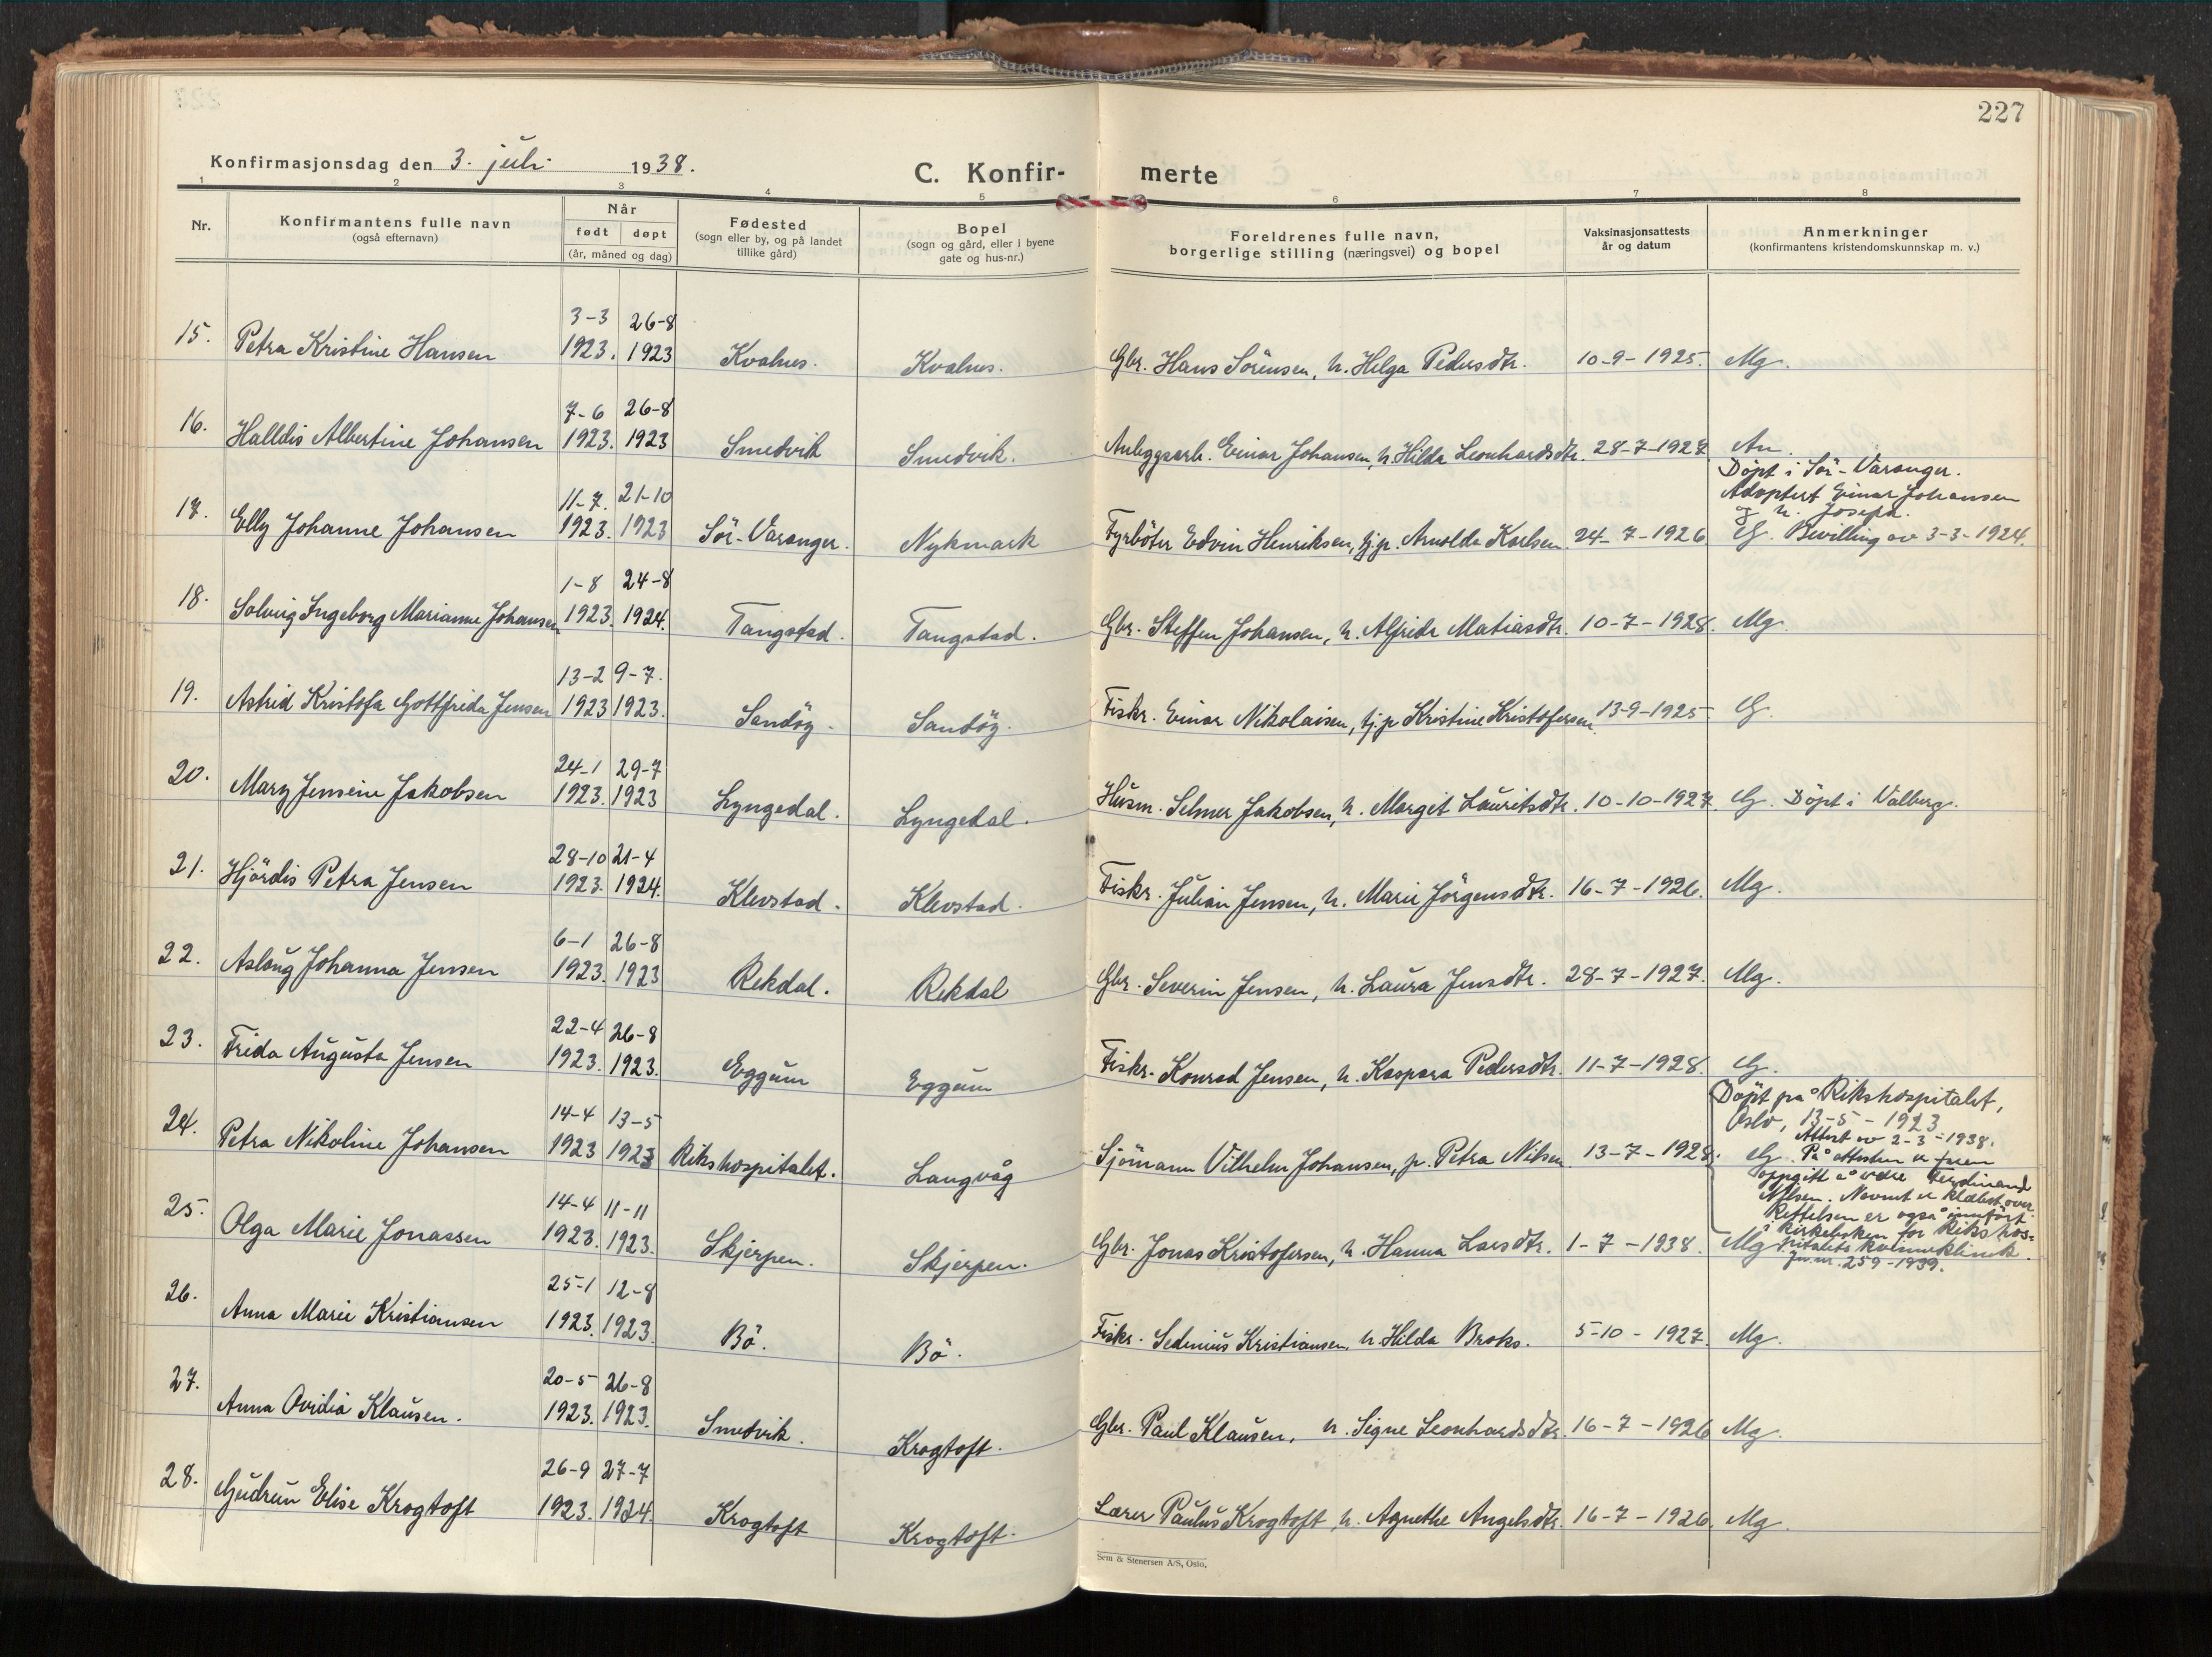 227
Konfirmasjonsdag den 3. juli 1938.
C. Konfirmerte
1 2 3 4 5 6 7 8
Nr.
Konfirmantens fulle navn
(også efternavn)
Når
født døpt
(år, måned og dag)
Fødested
(sogn eller by, og på landet
tillike gård)
Bopel
(sogn og gård, eller i byene
gate og hus-nr.)
Foreldrenes fulle navn,
borgerlige stilling (næringsvei) og bopel
Vaksinasjonsattests
år og datum
Anmerkninger
(konfirmantens kristendomskunnskap m. v.)
15. Petra Kristine Hansen 3-3 1923. 26-8 1923 Kvalnes. Kvalnes. Gbr. Hans Sörensen, h. Helga Pedersdtr. 10-9-1925. Mg.
16. Halldis Albertine Johansen 7-6 1923. 26-8 1923 Smedvik Smedvik. Anleggsarb. Einar Johansen, h. Hilda Leonhardsdtr. 28-7-1927 An.
17. Elly Johanne Johansen 11-7. 1923. 21-10 1923 Sör-Varanger. Nykmark Fyrböter Edvin Henriksen, tj.p. Arnolda Karlsen. 24-7-1926
Döpt i Sör-Varanger.
Adoptert Einar Johansen
og h. Josefa.
G. Bevilling av 3-3-1924.
18. Solveig Ingeborg Marianne Johansen 1-8 1923. 24-8 1924. Tangstad. Tangstad. Gbr. Steffen Johansen, h. Alfrida Matiasdtr. 10-7-1928. Mg.
19. Astrid Kristofa Gottfrida Jensen 13-2 1923 9-7. 1923. Sandöy. Sandöy. Fiskr. Einar Nikolaisen, tj.p Kristine Kristofersen 13-9-1925 G.
20. Mary Jensine Jakobsen 24-1 1923. 29-7 1923 Lyngedal. Lyngedal. Husm. Selmer Jakobsen, h. Margit Lauritsdtr. 10-10-1927. G. Döpt i Valberg.
21. Hjördis Petra Jensen 28-10 1923. 21-4 1924. Klevstad. Klevstad. Fiskr. Julian Jensen, h. Marie Jörgensdtr. 16-7-1926. Mg.
22. Aslaug Johanna Jensen 6-1 1923. 26-8 1923 Rekdal. Rekdal Gbr. Severin Jensen, h. Laura Jensdtr. 28-7-1927. Mg.
23. Frida Augusta Jensen 22-4 1923. 26-8 1923. Eggum Eggum Fiskr. Konrad Jensen, h. Kaspara Pedersdtr. 11-7-1928. G.
24. Petra Nikoline Johansen 14-4 1923 13-5 1923 Rikshospitalet. Langvåg Sjömann Vilhelm Johansen, p. Petra Nilsen 13-7-1928.
Döpt på Rikshospitalet,
Oslo, 13-5-1923
Attest av 2-3-1938.
G. På attesten er faren
oppgitt å være Ferdinand
Nilsen. Navnet er klabet over.
Rettelsen er også innfört
i kirkeboken for Rikshos=
pitalets kvinneklinik.
Jnr. 259-1939.
25. Olga Marie Jonassen 14-4 1923. 11-11 1923. Skjerpen. Skjerpen. Gbr. Jonas Kristofersen, h. Hanna Larsdtr. 1-7-1938. Mg
26. Anna Marie Kristiansen 25-1 1923. 12-8 1923. Bö. Bö. Fiskr. Sedenius Kristiansen, h. Hilda Broks. 5-10-1927. Mg.
27. Anna Ovidia Klausen. 20-5 1923. 26-8 1923. Smedvik. Krogtoft. Gbr. Paul Klausen, h. Signe Leonhardsdtr. 16-7-1926 Mg.
28. Gudrun Elise Krogtoft 26-9 1923. 27-7 1924. Krogtoft Krogtoft. Lærer Paulus Krogtoft, h. Agnethe Angelsdtr. 16-7-1926. Mg.
Sem & Stenersen A/S, Oslo.